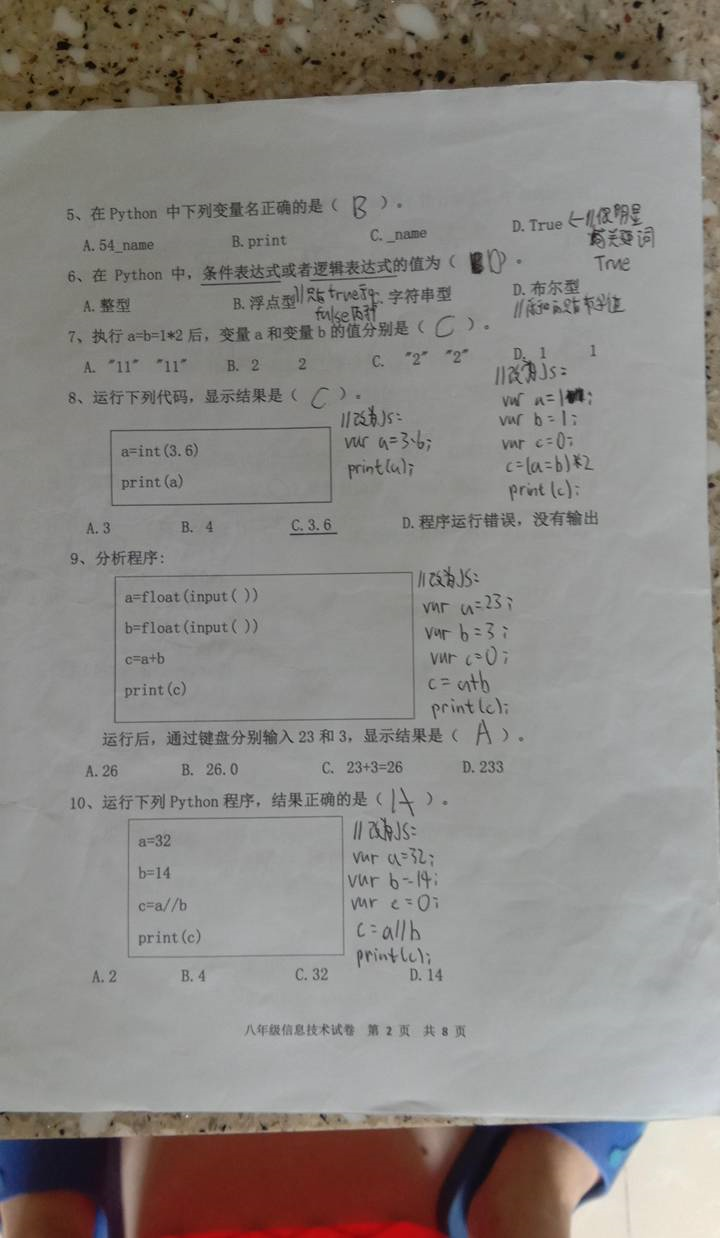 5、在Python 中下列变量名正确的是（ B ）。
A.54_name B.print C._name D.True ←//很明显
关键词
True
6、在 Python 中，条件表达式或者逻辑表达式的值为（ D ）。
A.整型 B.浮点型 //只有true和 .字符串型 D.布尔型
false两种
7、执行 a=b=1*2 后，变量 a 和变量 b 的值分别是（ C ）。
A. "11" "11" B. 2 2 C. "2" "2" D. 1 1
//改为JS:
var a=1;
var b=1;
var c=0;
c=(a=b)*2
print(c);
8、运行下列代码，显示结果是（ C ）。
a=int(3.6)
print(a)
//改为JS:
var a=3.6;
print(a);
A.3 B. 4 C.3.6 D.程序运行错误，没有输出
9、分析程序:
a=float(input( ))
b=float(input( ))
c=a+b
print(c)
//改为JS:
var a=23;
var b=3;
var c=0;
c=a+b
print(c);
运行后，通过键盘分别输入 23 和 3，显示结果是（ A ）。
A.26 B. 26.0 C. 23+3=26 D.233
10、运行下列Python 程序，结果正确的是（ A ）。
a=32
b=14
c=a//b
print(c)
//改为JS:
var a=32;
var b=14;
var c=0;
c=a//b
print(c);
A.2 B.4 C.32 D.14
八年级信息技术试卷 第 2 页 共 8 页